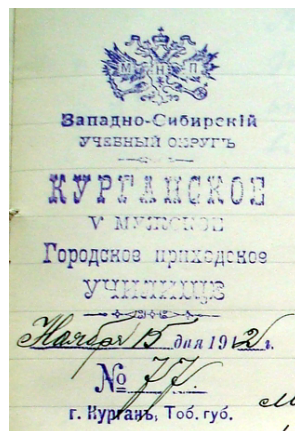 М Н П
Западно-Сибирскій
УЧЕБНЫЙ ОКРУГЪ
КУРГАНСКОЕ
V МУЖСКОЕ
Городское приходское
УЧИЛИЩЕ
Ноября 15 дня 1912 г.
№ 77.
г. Курганъ, Тоб. губ.